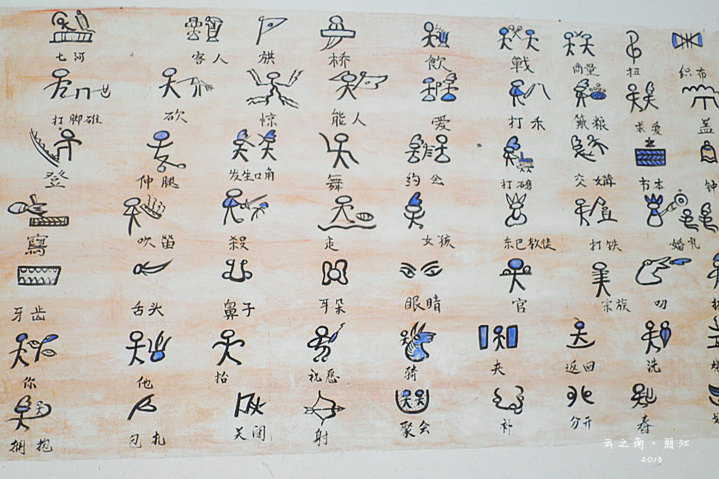 七河 客人 旗 桥 飲 戰 商量 扭 织布
打脚碓 砍 惊 能人 爱 打禾 簸粮 求爱 盖
登 伸腿 发生口角 舞 约会 打碉 交媾 书本 钟
寫 吹笛 殺 走 女孩 东巴教徒 打铁 婚礼
牙齿 舌头 鼻子 耳朵 眼睛 官 宗族 叨
你 他 抬 祝愿 猜 夹 返回 洗
拥抱 包扎 关闭 射 聚会 补 分开 春
云之南·丽江
2013